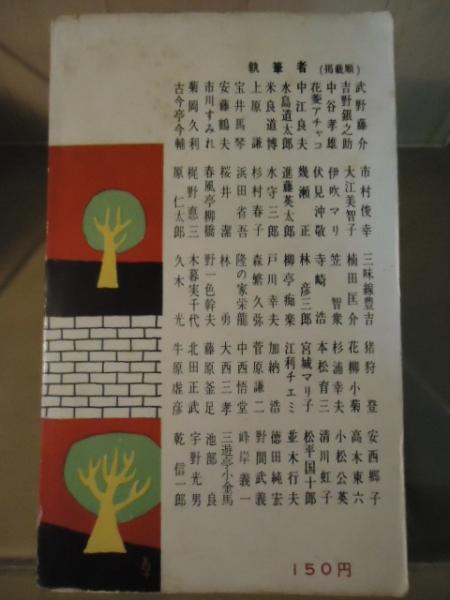 執筆者(掲載順)
武野藤介 市村俊幸 三味線豊吉 猪狩登 安西郷子
吉野銀之助 大江美智子 楠田匡介 花柳小菊 高木東六
中谷孝雄 伊吹マリ 笠智衆 杉浦幸夫 小松公英
花菱アチャコ 伏見沖敬 寺崎浩 本松育三 清川虹子
中江良夫 幾瀬正 林彦三郎 宮城マリ子 松平国十郎
水島道太郎 進藤英太郎 柳亭痴楽 江利チエミ 並木行夫
米良道博 水守三郎 戸川幸夫 加納浩 徳田純宏
上原謙 杉村春子 森繁久弥 菅原謙二 野間武義
宝井馬琴 浜田省吾 隆の家栄龍 中西悟堂 峰岸義一
安藤鶴夫 桜井潔 林勇 大西三孝 三遊亭小金馬
市川すみれ 春風亭柳橋 野一色幹夫 藤原釜足 池部良
菊岡久利 梶野悳三 木暮実千代 北田正武 宇野光男
古今亭今輔 原仁太郎 久木光 牛原虚彦 乾信一郎
150円